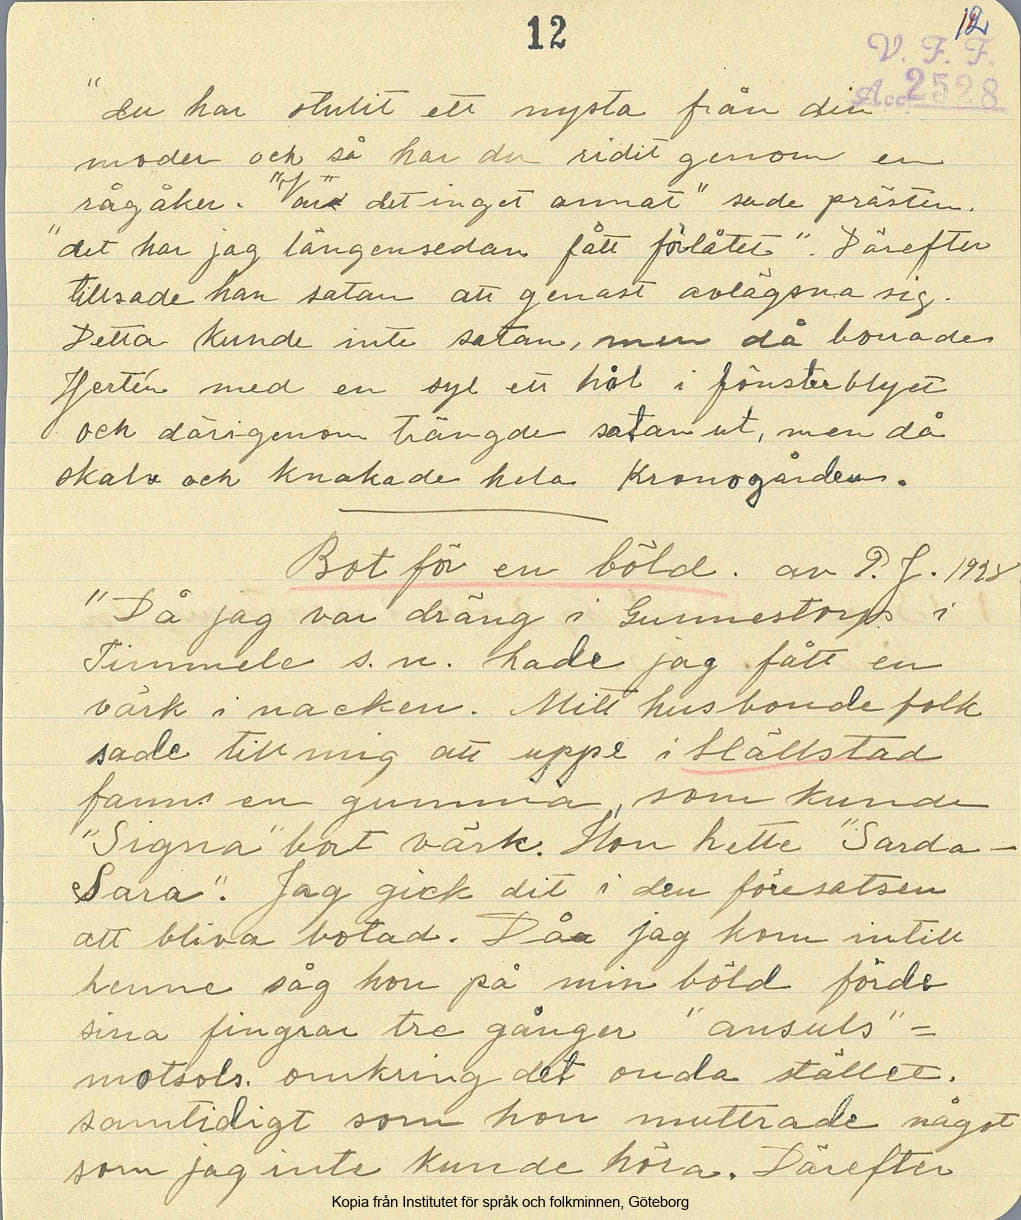 12
12
V. F. F.
Acc. 2528
"du har stulit ett nysta från din
moder och så har du ridit genom en
rågåker. "Var det inget annat" sade prästen.
"det har jag längensedan fått förlåtet". Därefter
tillsade han satan att genast avlägsna sig.
Detta kunde inte satan, men då borrade
Hjertén med en syl ett hål i fönsterblyet
och därigenom trängde satan ut, men då
skalv och knakade hela Kronogården.
Bot för en böld. av P. J. 1928
"Då jag var dräng i Gunnestorp i
Timmele s.n. hade jag fått en
värk i nacken. Mitt husbonde folk
sade till mig att uppe i Hällstad
fanns en gumma, som kunde
"Signa" bort värk. Hon hette "Sarda-
Sara". Jag gick dit i den föresatsen
att bliva botad. Då jag kom intill
henne såg hon på min böld förde
sina fingrar tre gånger "ansuls" =
motsols. omkring det onda stället.
samtidigt som hon muttrade något
som jag inte kunde höra. Därefter
Kopia från Institutet för språk och folkminnen, Göteborg